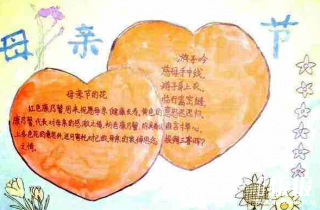 母亲节
游子吟
慈母手中线
游子身上衣
临行密密缝
意恐迟迟归
谁言寸草心
报得三春晖?
母亲节的花
红色康乃馨用来祝愿母亲健康长寿,黄色的
康乃馨代表对母亲的感激之情,粉色康乃馨
之情。